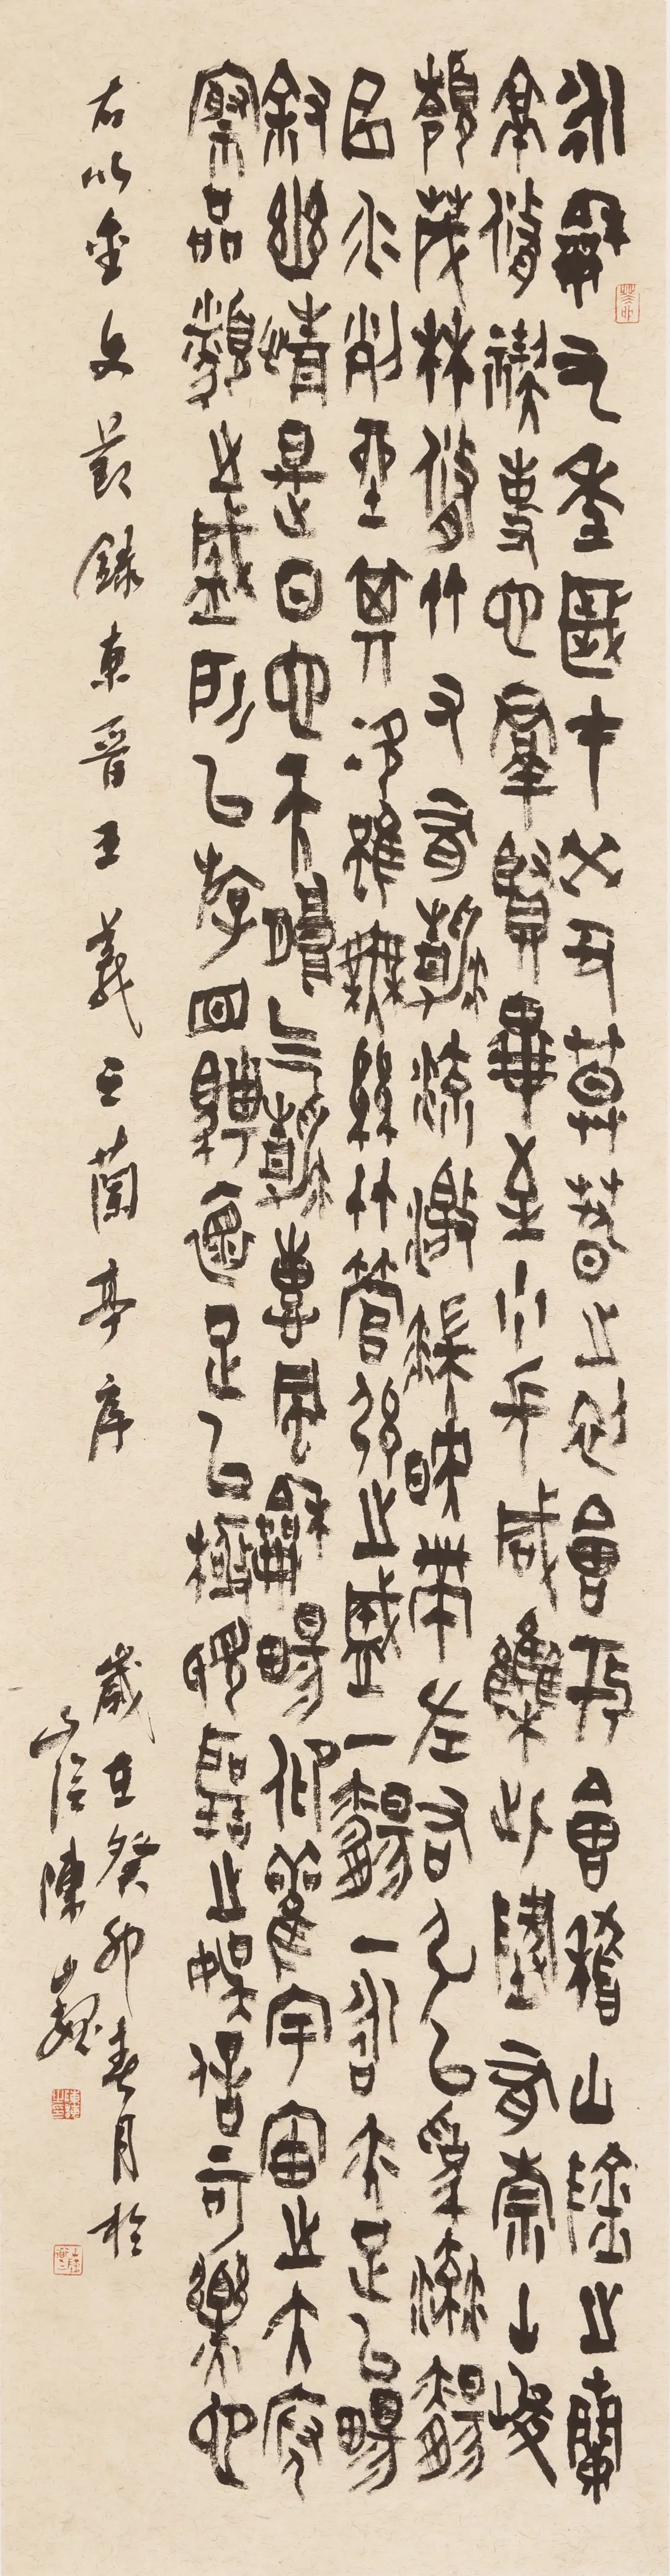 永龢九年歲才癸丑莫春之初會于會稽山陰之蘭
亭脩禊事也群賢畢至少長咸集此地有崇山峻
嶺茂林脩竹又有清流激湍映帶左右引以為流觴
曲水列坐其次雖無絲竹管弦之盛一觴一詠亦足以暢
敘幽情是日也天朗气清惠風龢暢仰觀宇宙之大俯
察品類之盛所以游目騁懷足以極視聽之娛信可樂也
右以金文節錄東晉王羲之蘭亭序
歲在癸卯春月於
山陰陳